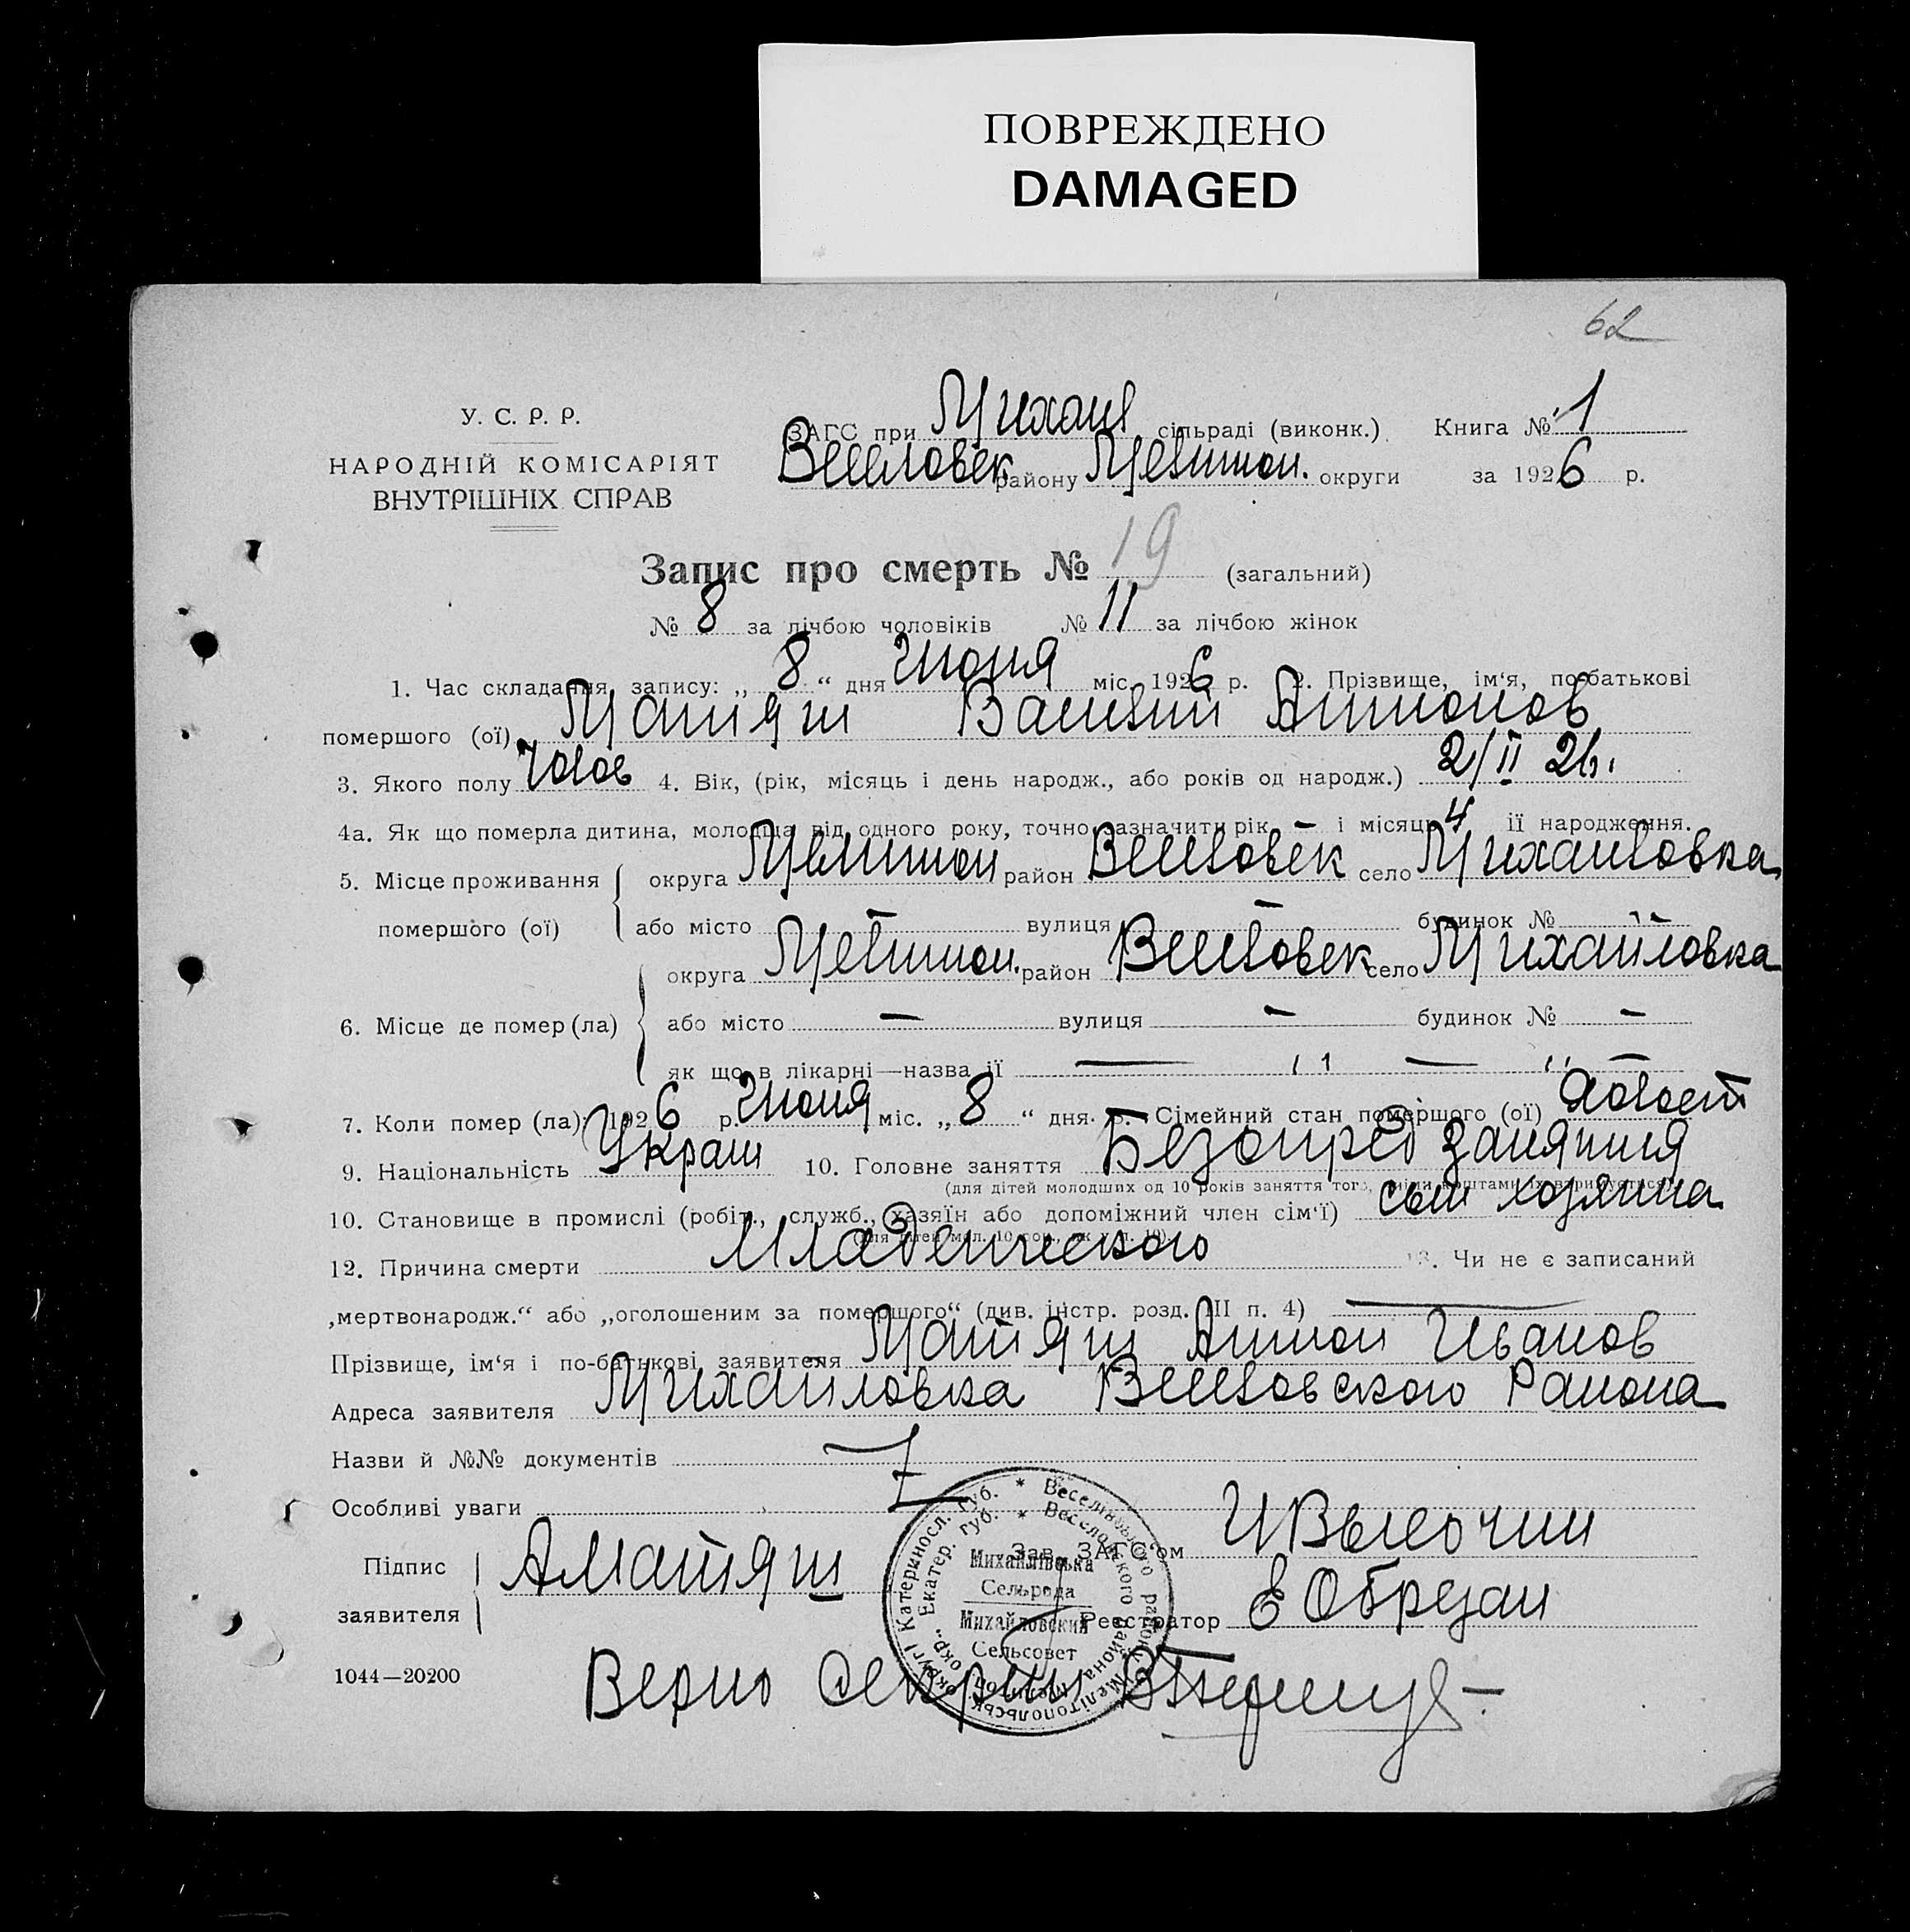 ПОВРЕЖДЕНО
DAMAGED
62
У. С. Р. Р.
НАРОДНІЙ КОМІСАРІЯТ
ВНУТРІШНІХ СПРАВ
ЗАГС при Михайл сільраді (виконк.) Книга № 1
Веселовск району Мелитоп. округи за 1926 р.
Запис про смерть № 19 (загальний)
№ 8 за лічбою чоловіків № 11 за лічбою жінок
1. Час складання запису: „ 8 “ дня Июня міс. 1926 р. 2. Прізвище, ім‘я, по-батькові
помершого (ої) Матяш Василий Антонов
3. Якого полу 4. Вік, (рік, місяць і день народж., або років од народж.) 2/II 26.
4а. Як що померла дитина, молодша від одного року, точно зазначити рік — і місяць 4 її народження.
5. Місце проживання помершого (ої) округа Мелитоп район Веселовск село Михайловка
або місто — вулиця — будинок № —
6. Місце де помер (ла) округа Мелитоп. район Веселовск село Михайловка
або місто — вулиця — будинок № —
як що в лікарні—назва її — „ — „ —
7. Коли помер (ла): 1926 р. Июня міс. „ 8 “ дня. 8. Сімейний стан помершого (ої) Холост
9. Національність Украин 10. Головне заняття Без опред занятия
(для дітей молодших од 10 років заняття того, чиїми коштами їх
10. Становище в промислі (робіт., служб., хазяїн або допоміжний член сім‘ї) сын хозяина
12. Причина смерти Младенческого 13. Чи не є записаний
„мертвонародж.“ або „оголошеним за помершого“ (див. інстр. розд. III п. 4) —
Прізвище, ім‘я і по-батькові заявителя Матяш Антон Иванов
Адреса заявителя Михайловка Веселовского Района
Назви й №№ документів
Особливі уваги
Підпис заявителя А Матяш
Зав. ЗАГС‘ом
Реєстратор Е Обрезан
Веселівського району Мелітопольськ. округі Катериносл. губ.
Веселовского района Мелитоп. окр. Екатер. губ.
Михайлівська
Сельрада
Михайловский
Сельсовет
1044—20200
Верно Секрет